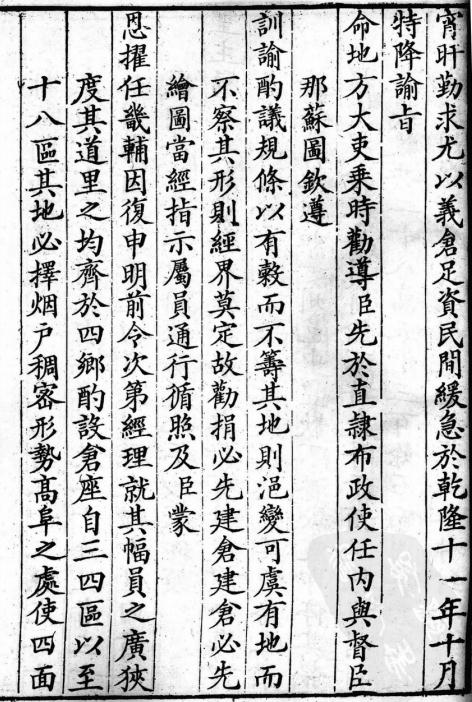 宵旰勤求尤以義倉足資民間緩急於乾隆十一年十月
特降諭旨
命地方大吏乗時勸導臣先於直隸布政使任内與督臣
那蘇圖欽遵
訓諭酌議規條以有榖而不籌其地則浥變可虞有地而
不察其形則經界莫定故勸捐必先建倉建倉必先
繪圖當經指示屬員通行循照及臣蒙
恩擢任畿輔因復申明前令次第經理就其幅員之廣狹
度其道里之均齊於四鄉酌設倉座自三四區以至
十八區其地必擇烟户稠宻形勢髙阜之處使四面